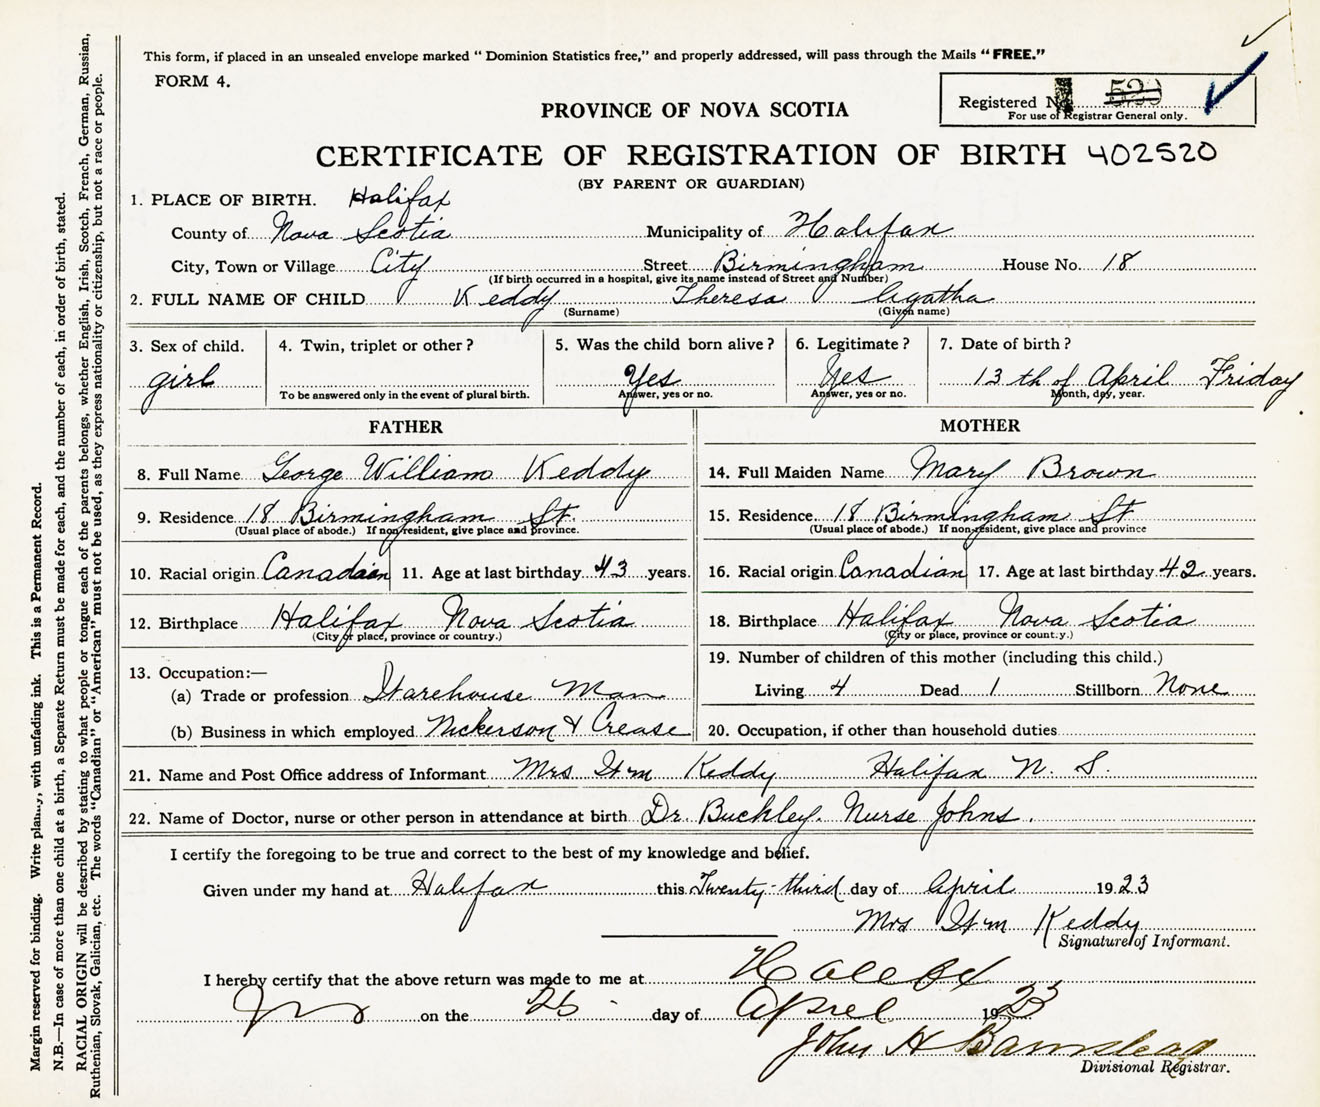 This form, if placed in an unsealed envelope marked “Dominion Statistics free,” and properly addressed, will pass through the Mails “FREE.”
FORM 4.
Registered No. 520
For use of Registrar General only.
PROVINCE OF NOVA SCOTIA
CERTIFICATE OF REGISTRATION OF BIRTH 402520
(BY PARENT OR GUARDIAN)
1. PLACE OF BIRTH. Halifax
County of Nova Scotia Municipality of Halifax
City, Town or Village City Street Birmingham House No. 18
(If birth occurred in a hospital, give its name instead of Street and Number)
2. FULL NAME OF CHILD Keddy Theresa Agatha
(Surname) (Given name)
3. Sex of child. 4. Twin, triplet or other? 5. Was the child born alive? 6. Legitimate? 7. Date of birth?
girl Yes Yes 13 th of April Friday
To be answered only in the event of plural birth. Answer, yes or no. Answer, yes or no. Month, day, year.
FATHER MOTHER
8. Full Name George William Keddy 14. Full Maiden Name Mary Brown
9. Residence 18 Birmingham St. 15. Residence 18 Birmingham St
(Usual place of abode.) If nonresident, give place and province. (Usual place of abode.) If nonresident, give place and province
10. Racial origin Canadain 11. Age at last birthday 43 years. 16. Racial origin Canadian 17. Age at last birthday 42 years.
12. Birthplace Halifax Nova Scotia 18. Birthplace Halifax Nova Scotia
(City or place, province or country.) (City or place, province or count.y.)
13. Occupation:— 19. Number of children of this mother (including this child.)
(a) Trade or profession Warehouse Man Living 4 Dead 1 Stillborn None
(b) Business in which employed Nickerson & Crease 20. Occupation, if other than household duties
21. Name and Post Office address of Informant Mrs Wm Keddy Halifax N. S.
22. Name of Doctor, nurse or other person in attendance at birth Dr. Buckley. Nurse Johns.
I certify the foregoing to be true and correct to the best of my knowledge and belief.
Given under my hand at Halifax this Twenty-third day of April 1923
Mrs Wm Keddy
Signature of Informant.
I hereby certify that the above return was made to me at Halifax
on the 26 day of April 1923
John H Barnstead
Divisional Registrar.
Margin reserved for binding. Write plainly, with unfading ink. This is a Permanent Record.
N.B.—In case of more than one child at a birth, a Separate Return must be made for each, and the number of each, in order of birth, stated.
RACIAL ORIGIN will be described by stating to what people or tongue each of the parents belongs, whether English, Irish, Scotch, French, German, Russian,
Ruthenian, Slovak, Galician, etc. The words “Canadian” or “American” must not be used, as they express nationality or citizenship, but not a race or people.